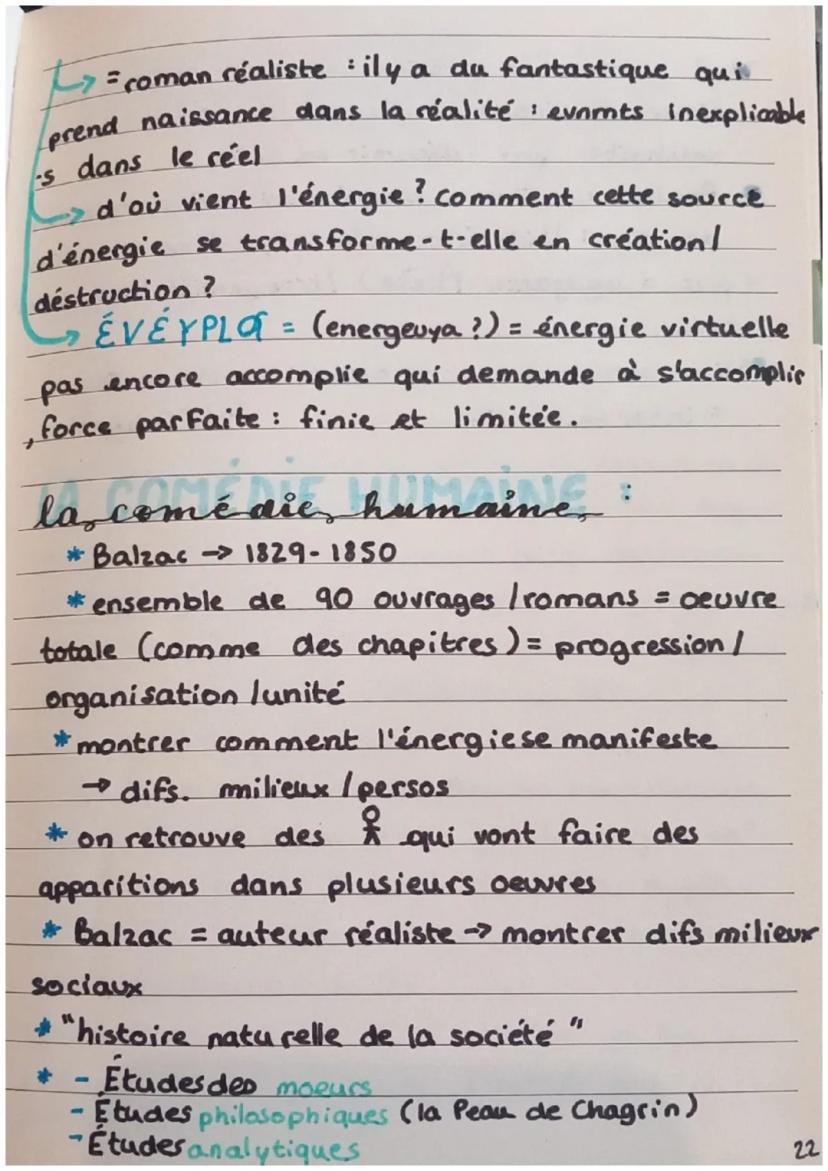 ↳ = roman réaliste : il y a du fantastique qui
prend naissance dans la réalité : evnmts inexplicable
.s dans le réel
↳ d'où vient l'énergie ? comment cette source
d'énergie se transforme-t-elle en création/
déstruction ?
↳ ÉVÉYPLα = (energeuya ?) = énergie virtuelle
pas encore accomplie qui demande à s'accomplir
, force parfaite : finie et limitée.
LA COMÉDIE HUMAINE :
la comédie humaine
* Balzac → 1829-1850
* ensemble de 90 ouvrages /romans = oeuvre
totale (comme des chapitres) = progression /
organisation /unité
* montrer comment l'énergie se manifeste
→ difs. milieux / persos
* on retrouve des qui vont faire des
apparitions dans plusieurs oeuvres
* Balzac = auteur réaliste → montrer difs milieux
sociaux
* "histoire naturelle de la société"
* - Études des moeurs
- Études philosophiques (la Peau de Chagrin)
- Études analytiques
22